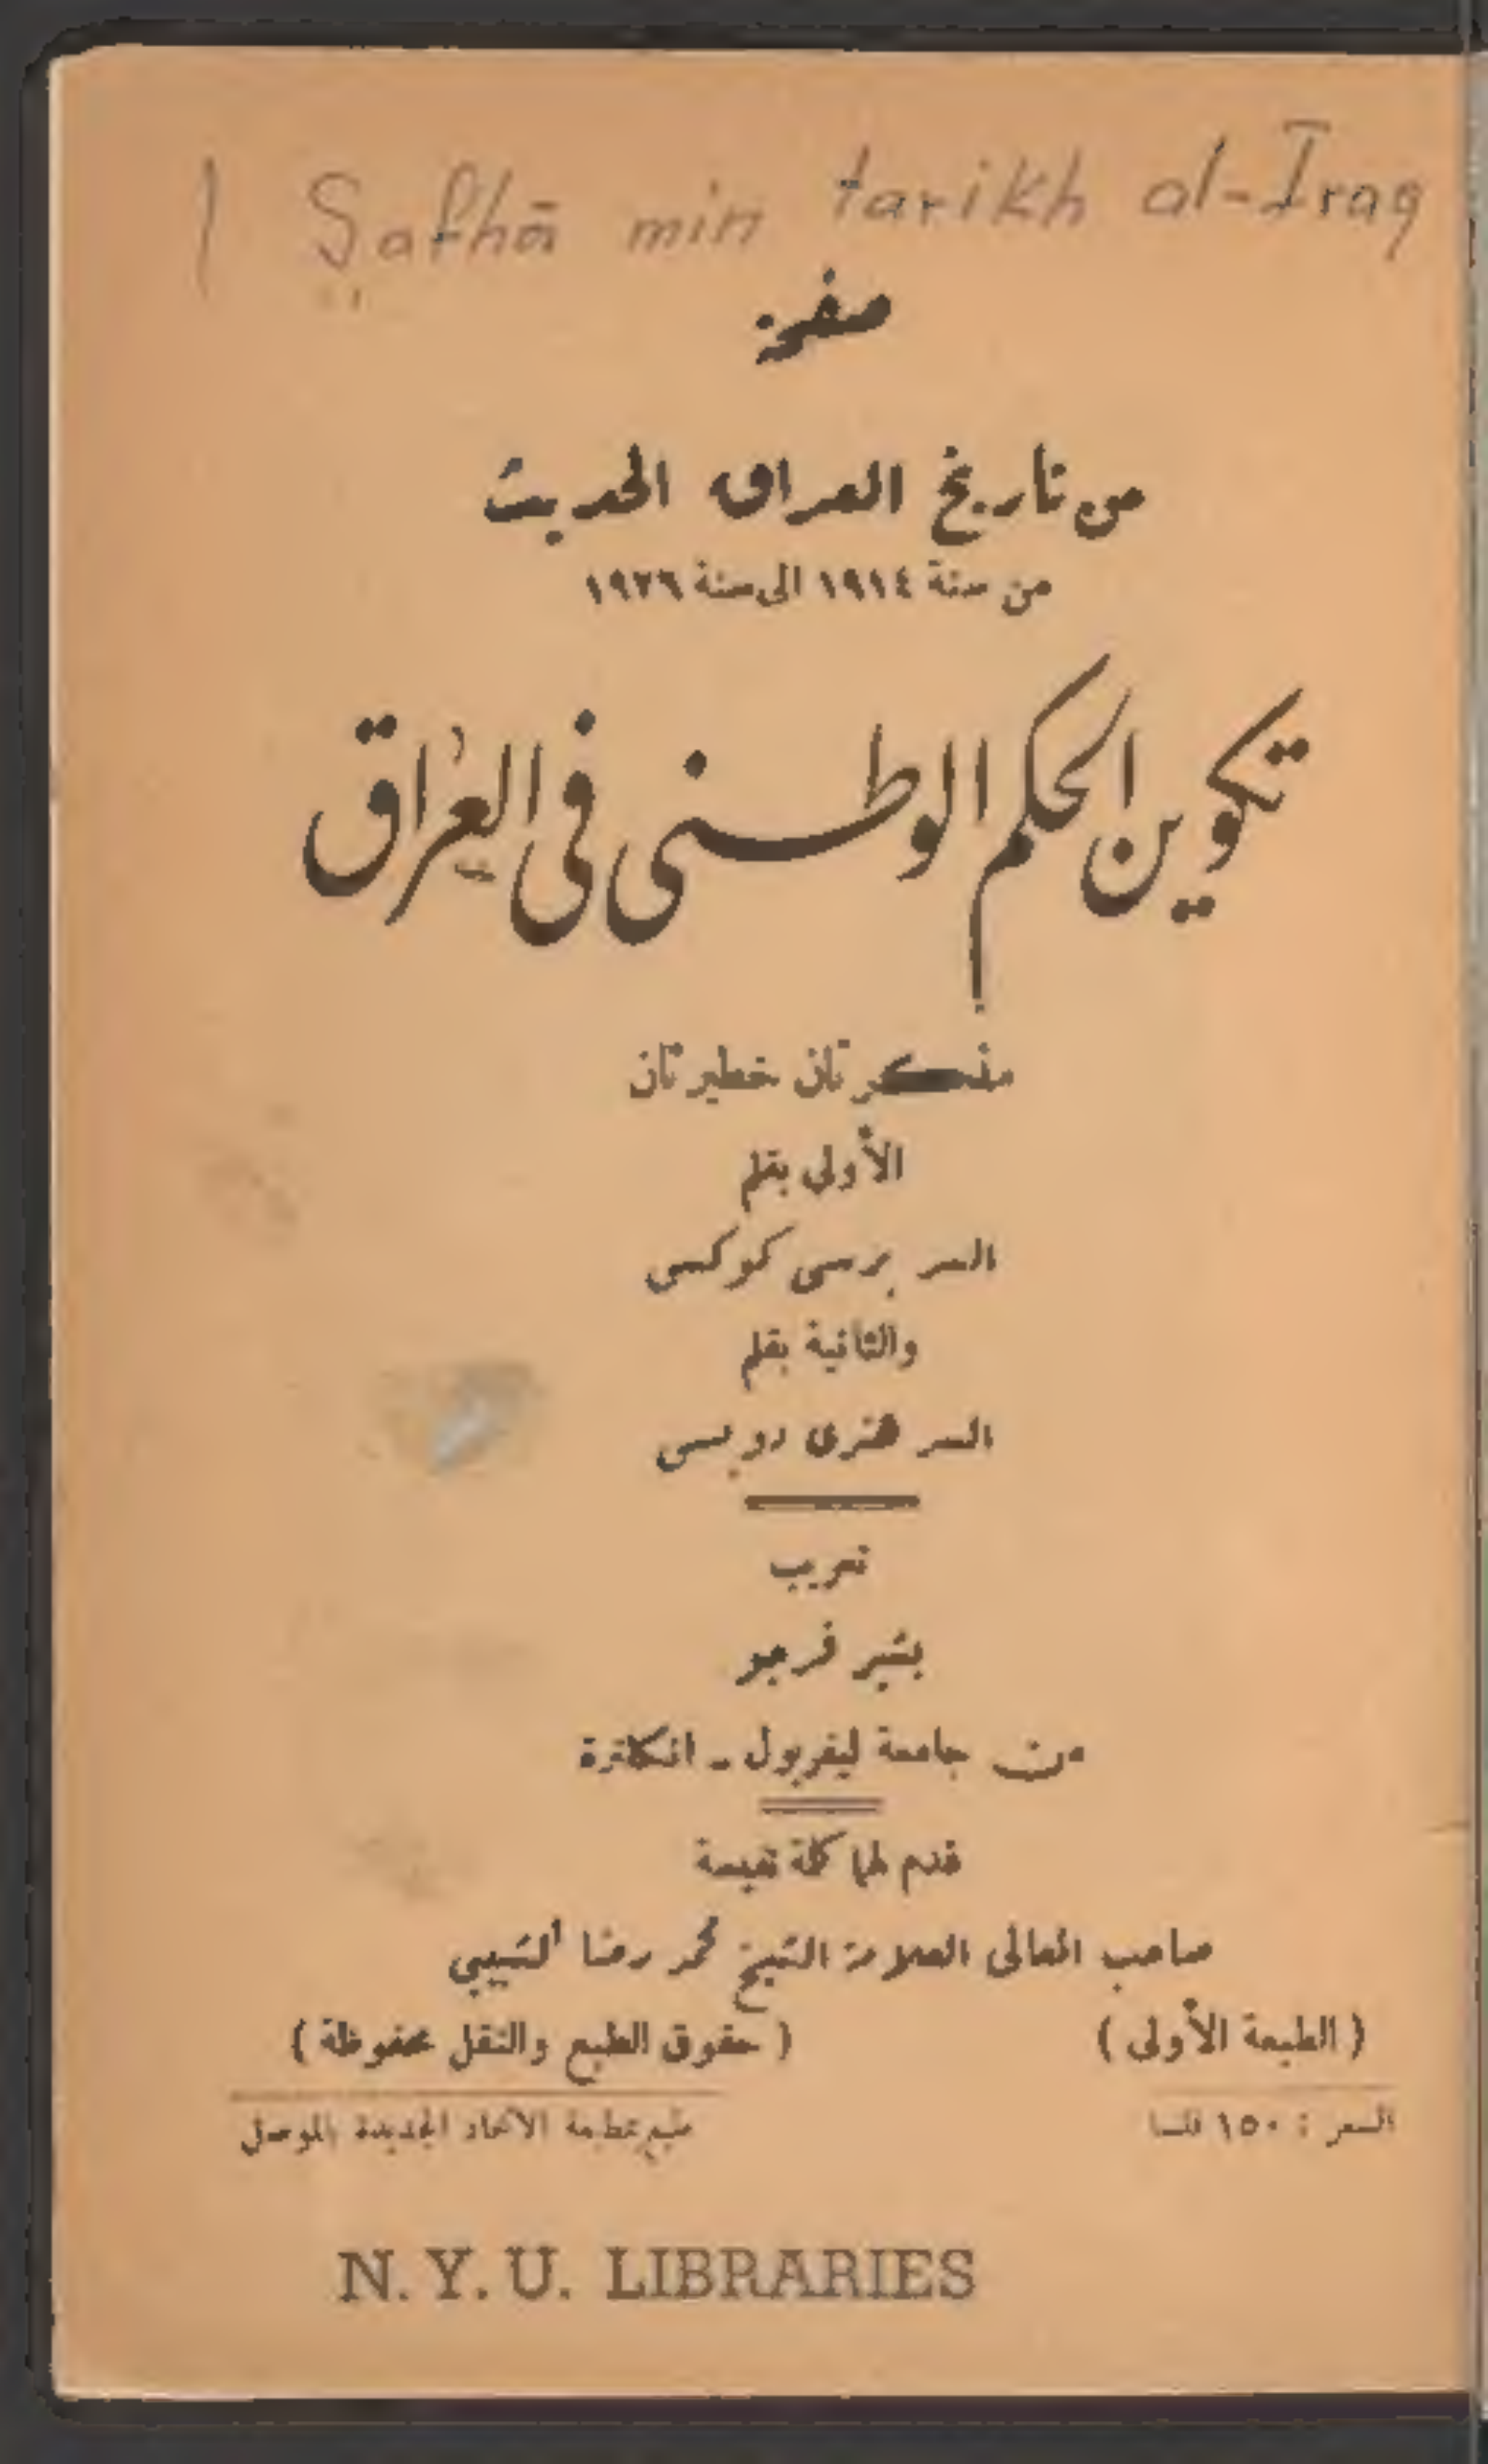 Ṣafhā min tarikh al-Īraq
صفحة
من تاريخ العراق الحديث
من سنة ١٩١٤ الى سنة ١٩٢٦
تكوين الحكم الوطنى فى العراق
مذكرتان خطيرتان
الأولى بقلم
السر برسى كوكس
والثانية بقلم
السر هنرى دوبس
تعريب
بشير فرجو
من جامعة ليفربول - انكلترة
قدم لها كلمة نفيسة
صاحب المعالى العلامة الشيخ محمد رضا الشبيبي
( الطبعة الأولى ) ( حقوق الطبع والنقل محفوظة )
السعر : ١٥٠ فلسا طبع بمطبعة الاتحاد الجديدة بالموصل
N. Y. U. LIBRARIES